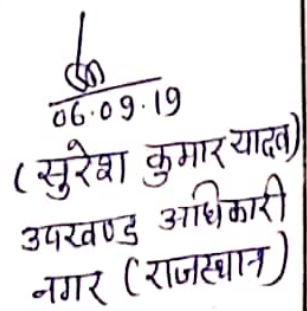 06.09.19
(सुरेश कुमार यादव)
उपखण्ड अधिकारी
नगर (राजस्थान)